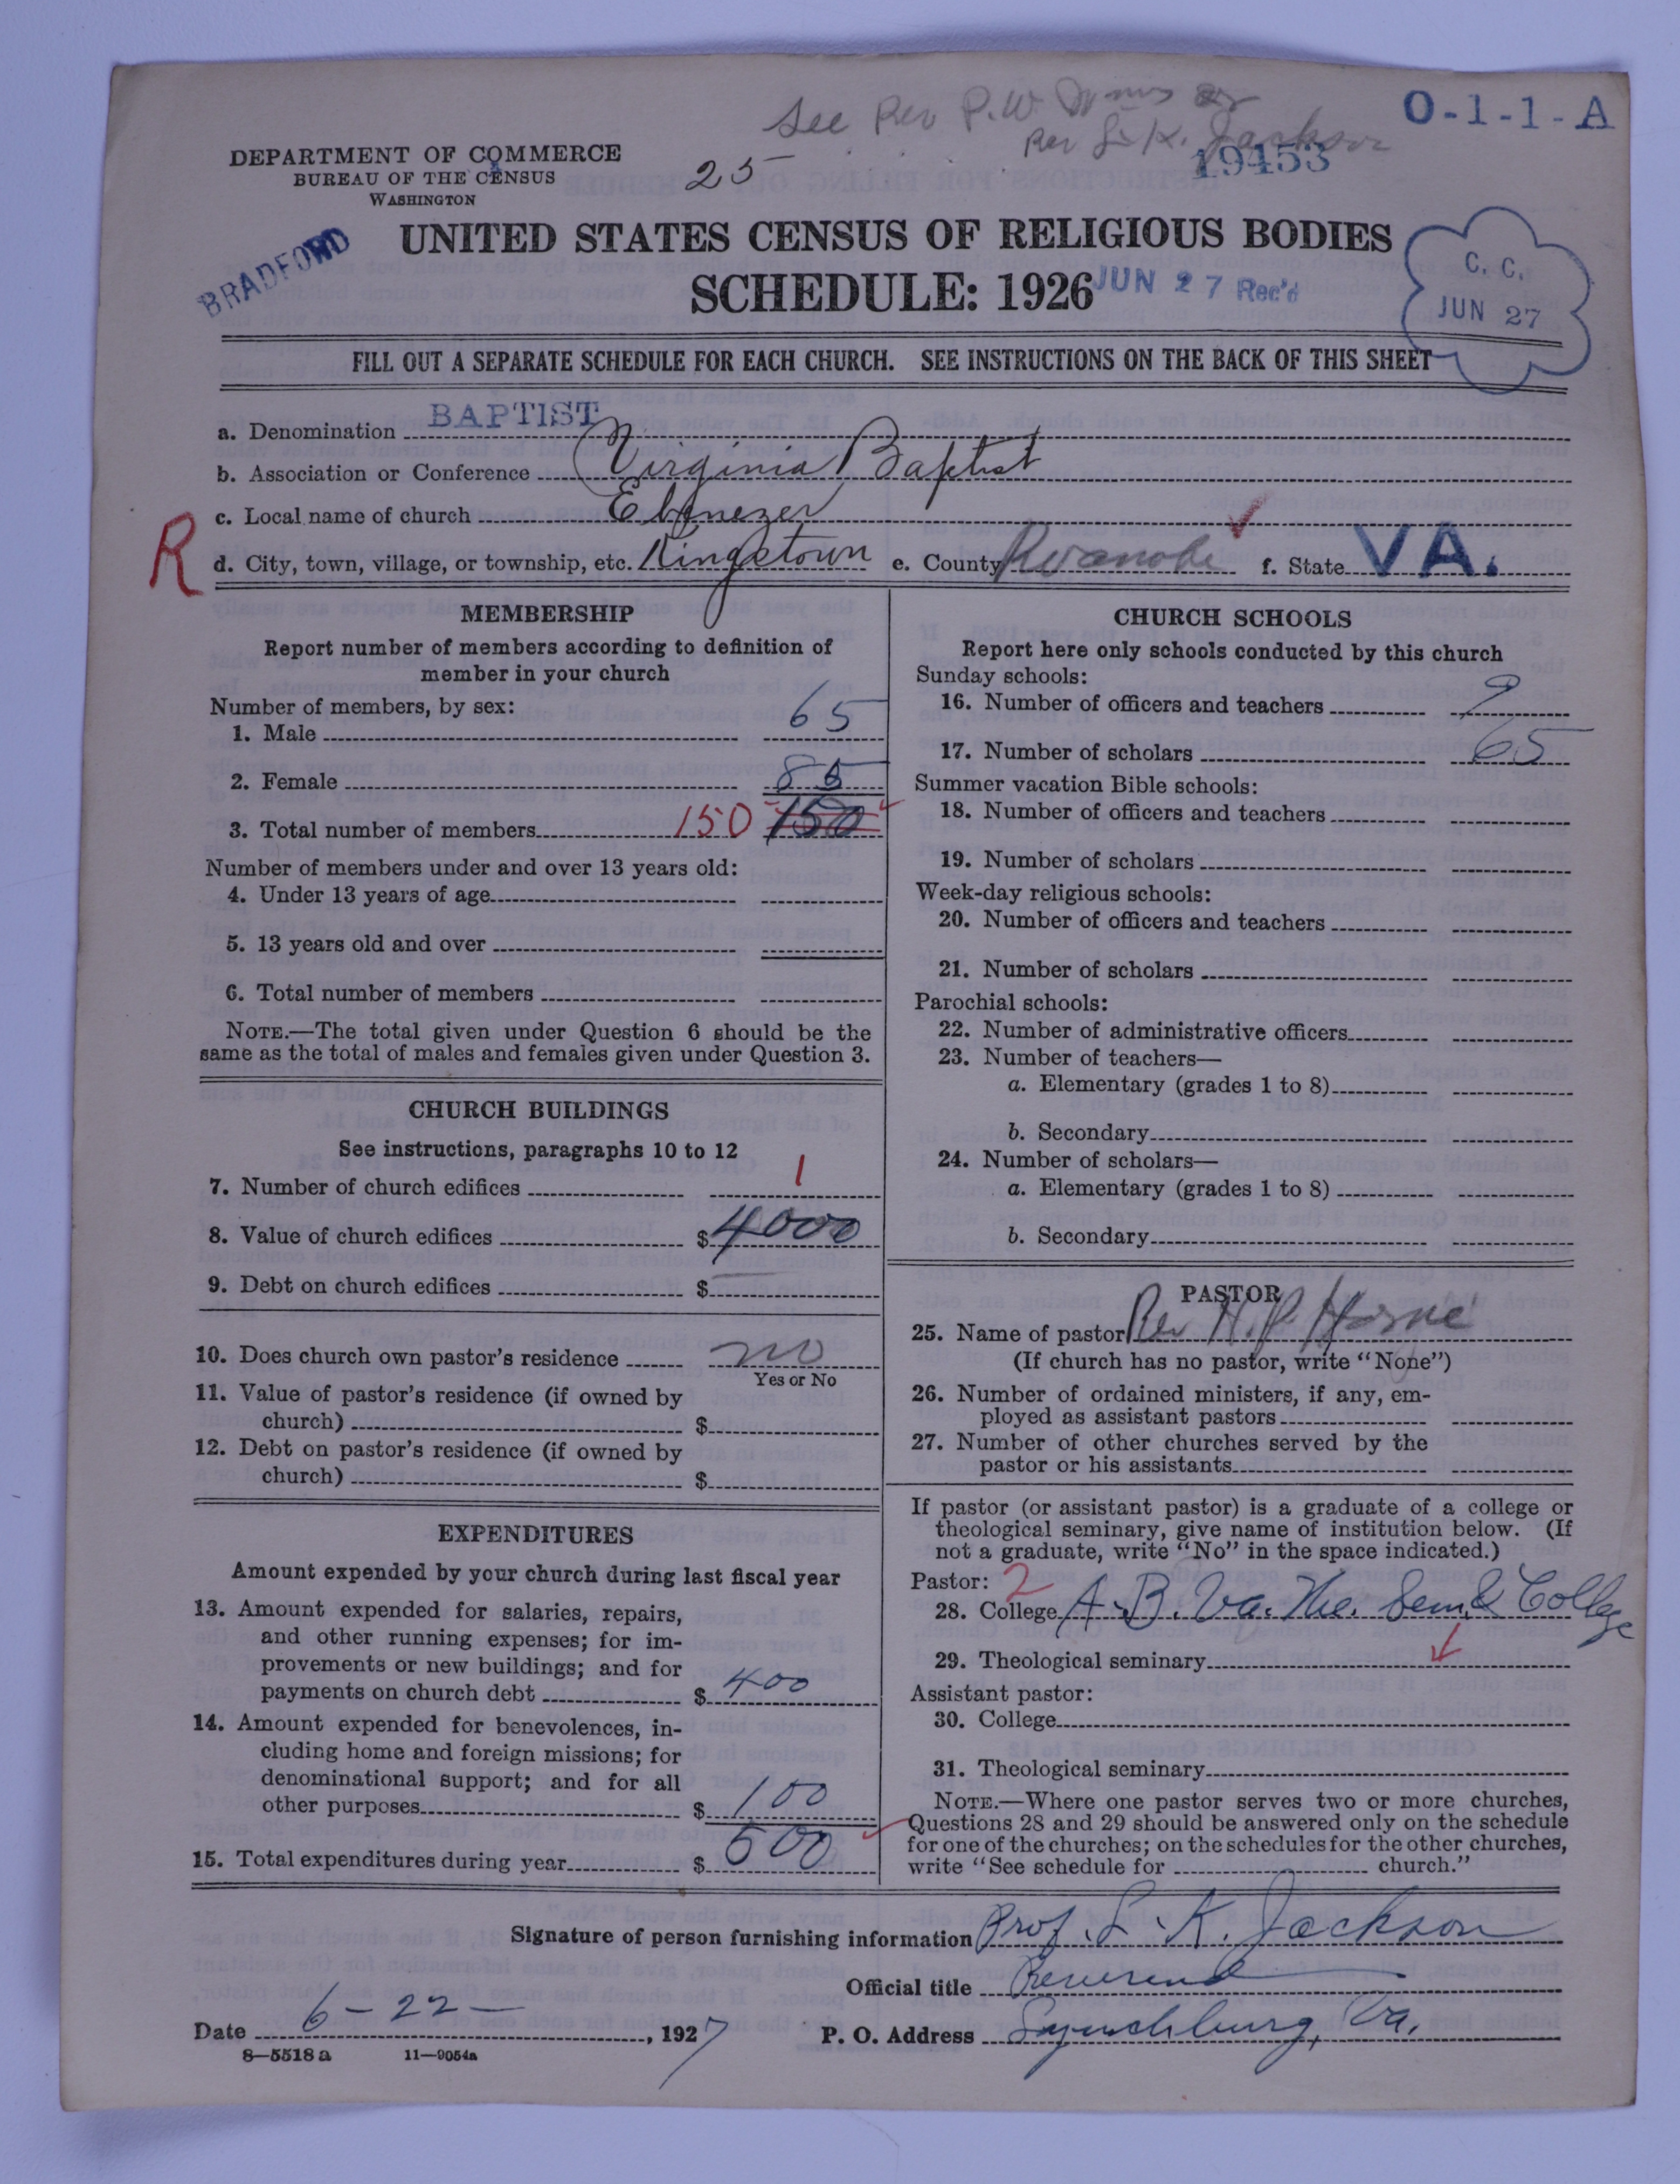 See Rev P.W.
O-1-1-A
Rev L. K. Jackson
19453
DEPARTMENT OF COMMERCE
BUREAU OF THE CENSUS
WASHINGTON
25
BRADFORD
UNITED STATES CENSUS OF RELIGIOUS BODIES
SCHEDULE: 1926
JUN 27 Rec'd
C. C.
JUN 27
FILL OUT A SEPARATE SCHEDULE FOR EACH CHURCH. SEE INSTRUCTIONS ON THE BACK OF THIS SHEET
a. Denomination BAPTIST
b. Association or Conference Virginia Baptist
c. Local name of church Ebenezer
R
d. City, town, village, or township, etc. Kingstown e. County Roanoke f. State VA.
MEMBERSHIP
Report number of members according to definition of
member in your church
Number of members, by sex:
1. Male 65
2. Female 85
3. Total number of members 150 150
Number of members under and over 13 years old:
4. Under 13 years of age
5. 13 years old and over
6. Total number of members
NOTE.—The total given under Question 6 should be the
same as the total of males and females given under Question 3.
CHURCH BUILDINGS
See instructions, paragraphs 10 to 12
7. Number of church edifices 1
8. Value of church edifices $4000
9. Debt on church edifices $
10. Does church own pastor's residence no
Yes or No
11. Value of pastor's residence (if owned by
church) $
12. Debt on pastor's residence (if owned by
church) $
EXPENDITURES
Amount expended by your church during last fiscal year
13. Amount expended for salaries, repairs,
and other running expenses; for im-
provements or new buildings; and for
payments on church debt $ 400
14. Amount expended for benevolences, in-
cluding home and foreign missions; for
denominational support; and for all
other purposes $ 100
15. Total expenditures during year $ 500
CHURCH SCHOOLS
Report here only schools conducted by this church
Sunday schools:
16. Number of officers and teachers 9
17. Number of scholars 65
Summer vacation Bible schools:
18. Number of officers and teachers
19. Number of scholars
Week-day religious schools:
20. Number of officers and teachers
21. Number of scholars
Parochial schools:
22. Number of administrative officers
23. Number of teachers—
a. Elementary (grades 1 to 8)
b. Secondary
24. Number of scholars—
a. Elementary (grades 1 to 8)
b. Secondary
PASTOR
25. Name of pastor Rev H. P. Horne
(If church has no pastor, write "None")
26. Number of ordained ministers, if any, em-
ployed as assistant pastors
27. Number of other churches served by the
pastor or his assistants
If pastor (or assistant pastor) is a graduate of a college or
theological seminary, give name of institution below. (If
not a graduate, write "No" in the space indicated.)
Pastor: 2
28. College A. B. Va. The. Sem. & College
29. Theological seminary
Assistant pastor:
30. College
31. Theological seminary
NOTE.—Where one pastor serves two or more churches,
Questions 28 and 29 should be answered only on the schedule
for one of the churches; on the schedules for the other churches,
write "See schedule for church."
Signature of person furnishing information Prof. L. K. Jackson
Official title Reverend
Date 6-22-, 1927 P. O. Address Lynchburg, Va.
8—5518 a 11—9054a